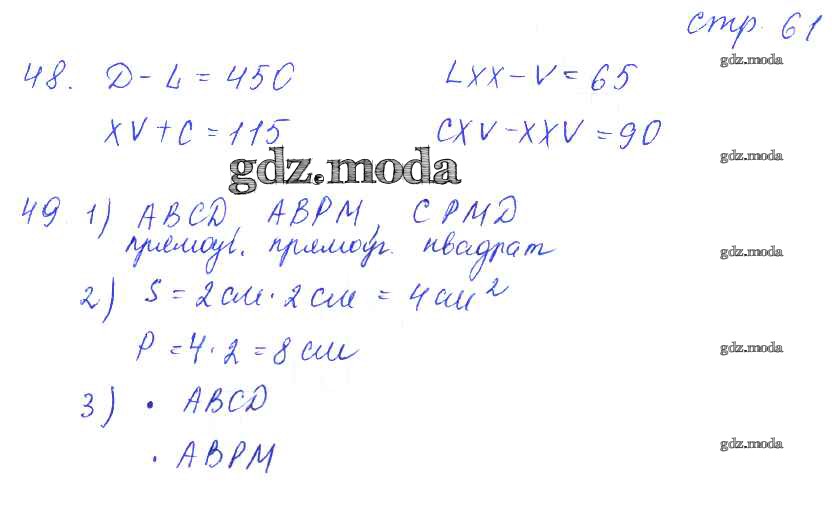 стр. 61
gdz.moda
48. D - L = 450 LXX - V = 65
XV + C = 115 CXV - XXV = 90
gdz.moda
gdz.moda
49 1) ABCD, ABPM, CPMD
прямоуг. прямоуг. квадрат
gdz.moda
2) S = 2 см · 2 см = 4 см²
P = 4 · 2 = 8 см
gdz.moda
3) • ABCD
• ABPM
gdz.moda